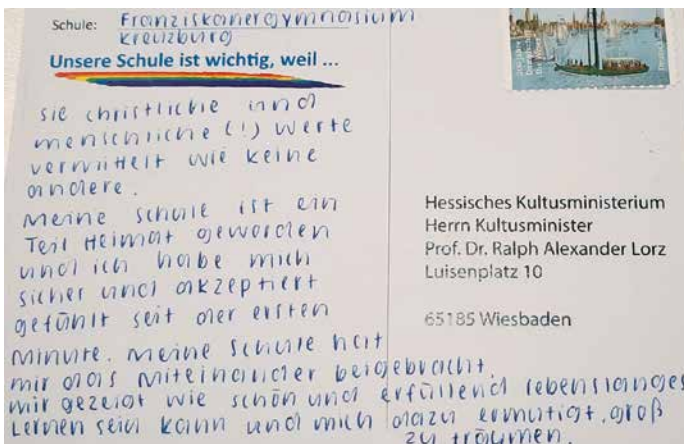 Schule: Franziskanergymnasium
Kreuzburg
Unsere Schule ist wichtig, weil ...
sie christliche und
menschliche (!) Werte
vermittelt wie keine
andere.
Meine Schule ist ein
Teil Heimat geworden
und ich habe mich
sicher und akzeptiert
gefühlt seit der ersten
Minute. Meine Schule hat
mir das Miteinander beigebracht,
mir gezeigt wie schön und erfüllend lebenslanges
Lernen sein kann und mich dazu ermutigt, groß
zu träumen.
Hessisches Kultusministerium
Herrn Kultusminister
Prof. Dr. Ralph Alexander Lorz
Luisenplatz 10
65185 Wiesbaden